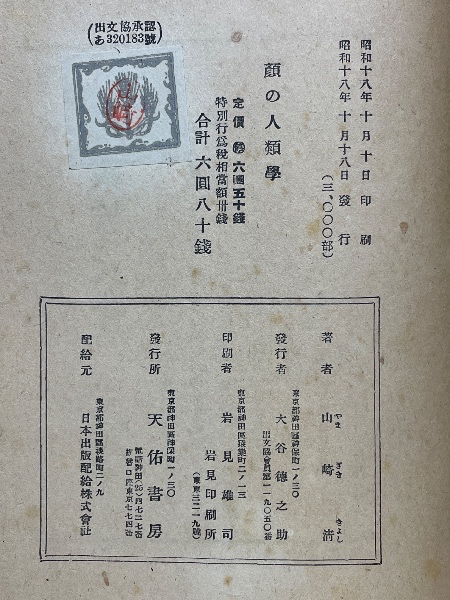 (出文協承認
あ320183號)
昭和十八年十月十日印刷
昭和十八年十月十八日發行
(三、〇〇〇部)
顏の人類學
定價 停 六圓五十錢
特別行爲税相當額卅錢
合計 六圓八十錢
山崎
著者 山崎清
やま ざき きよし
東京都神田區神保町一ノ三〇
發行者 大谷德之助
出文協會員第一一九〇五〇番
東京都神田區猿樂町二ノ一三
印刷者 岩見雄司
岩見印刷所
(東京三二一九號)
東京都神田區神保町一ノ三〇
發行所 天佑書房
電話神田(25)四七二七番
振替口座東京七七四番
東京都神田區淡路町二ノ九
配給元 日本出版配給株式會社